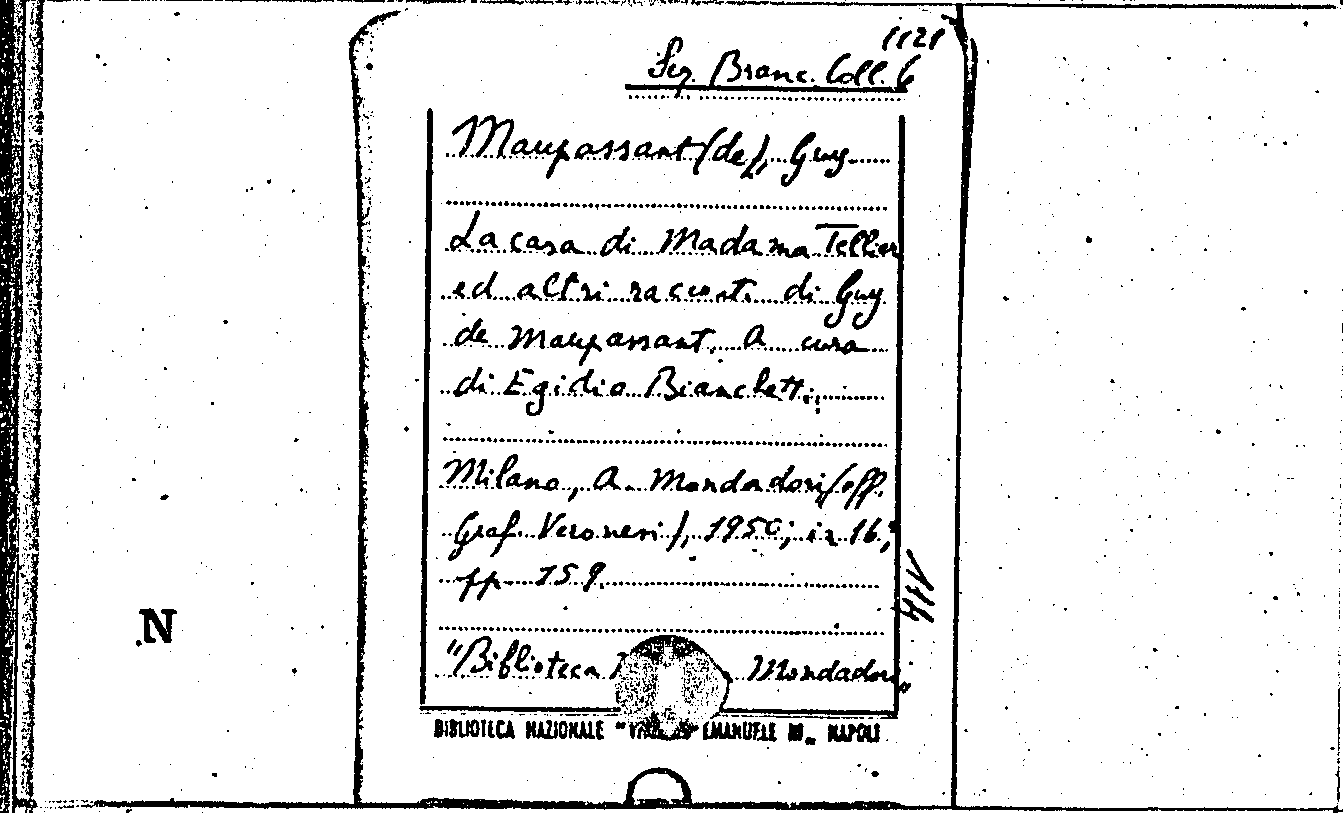 1121
Sez. Branc. Coll. 6
Maupassant (de), Guy
La casa di Madama Tellier
ed altri racconti di Guy
de Maupassant. A cura
di Egidio Bianchetti.
Milano, A. Mondadori (off.
Graf. Veronesi), 1950; in 16º,
pp. 159.
"Biblioteca Mondadori"
N
BIBLIOTECA NAZIONALE " EMANUELE III„ NAPOLI